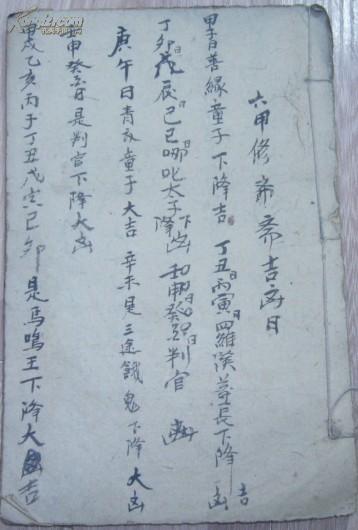 六甲修齋斎吉凶日
甲子日善緣童子下降吉 丁丑日丙寅日四羅漢尊長下降凶吉
丁卯日戊辰日己巳日哪叱太子下降凶 壬申日癸酉日判官凶
庚午日青衣童子大吉 辛未是三途餓鬼下降大凶
壬申癸酉日是判官下降大凶
甲戌乙亥丙子丁丑戊寅己卯是馬鳴王下降大吉